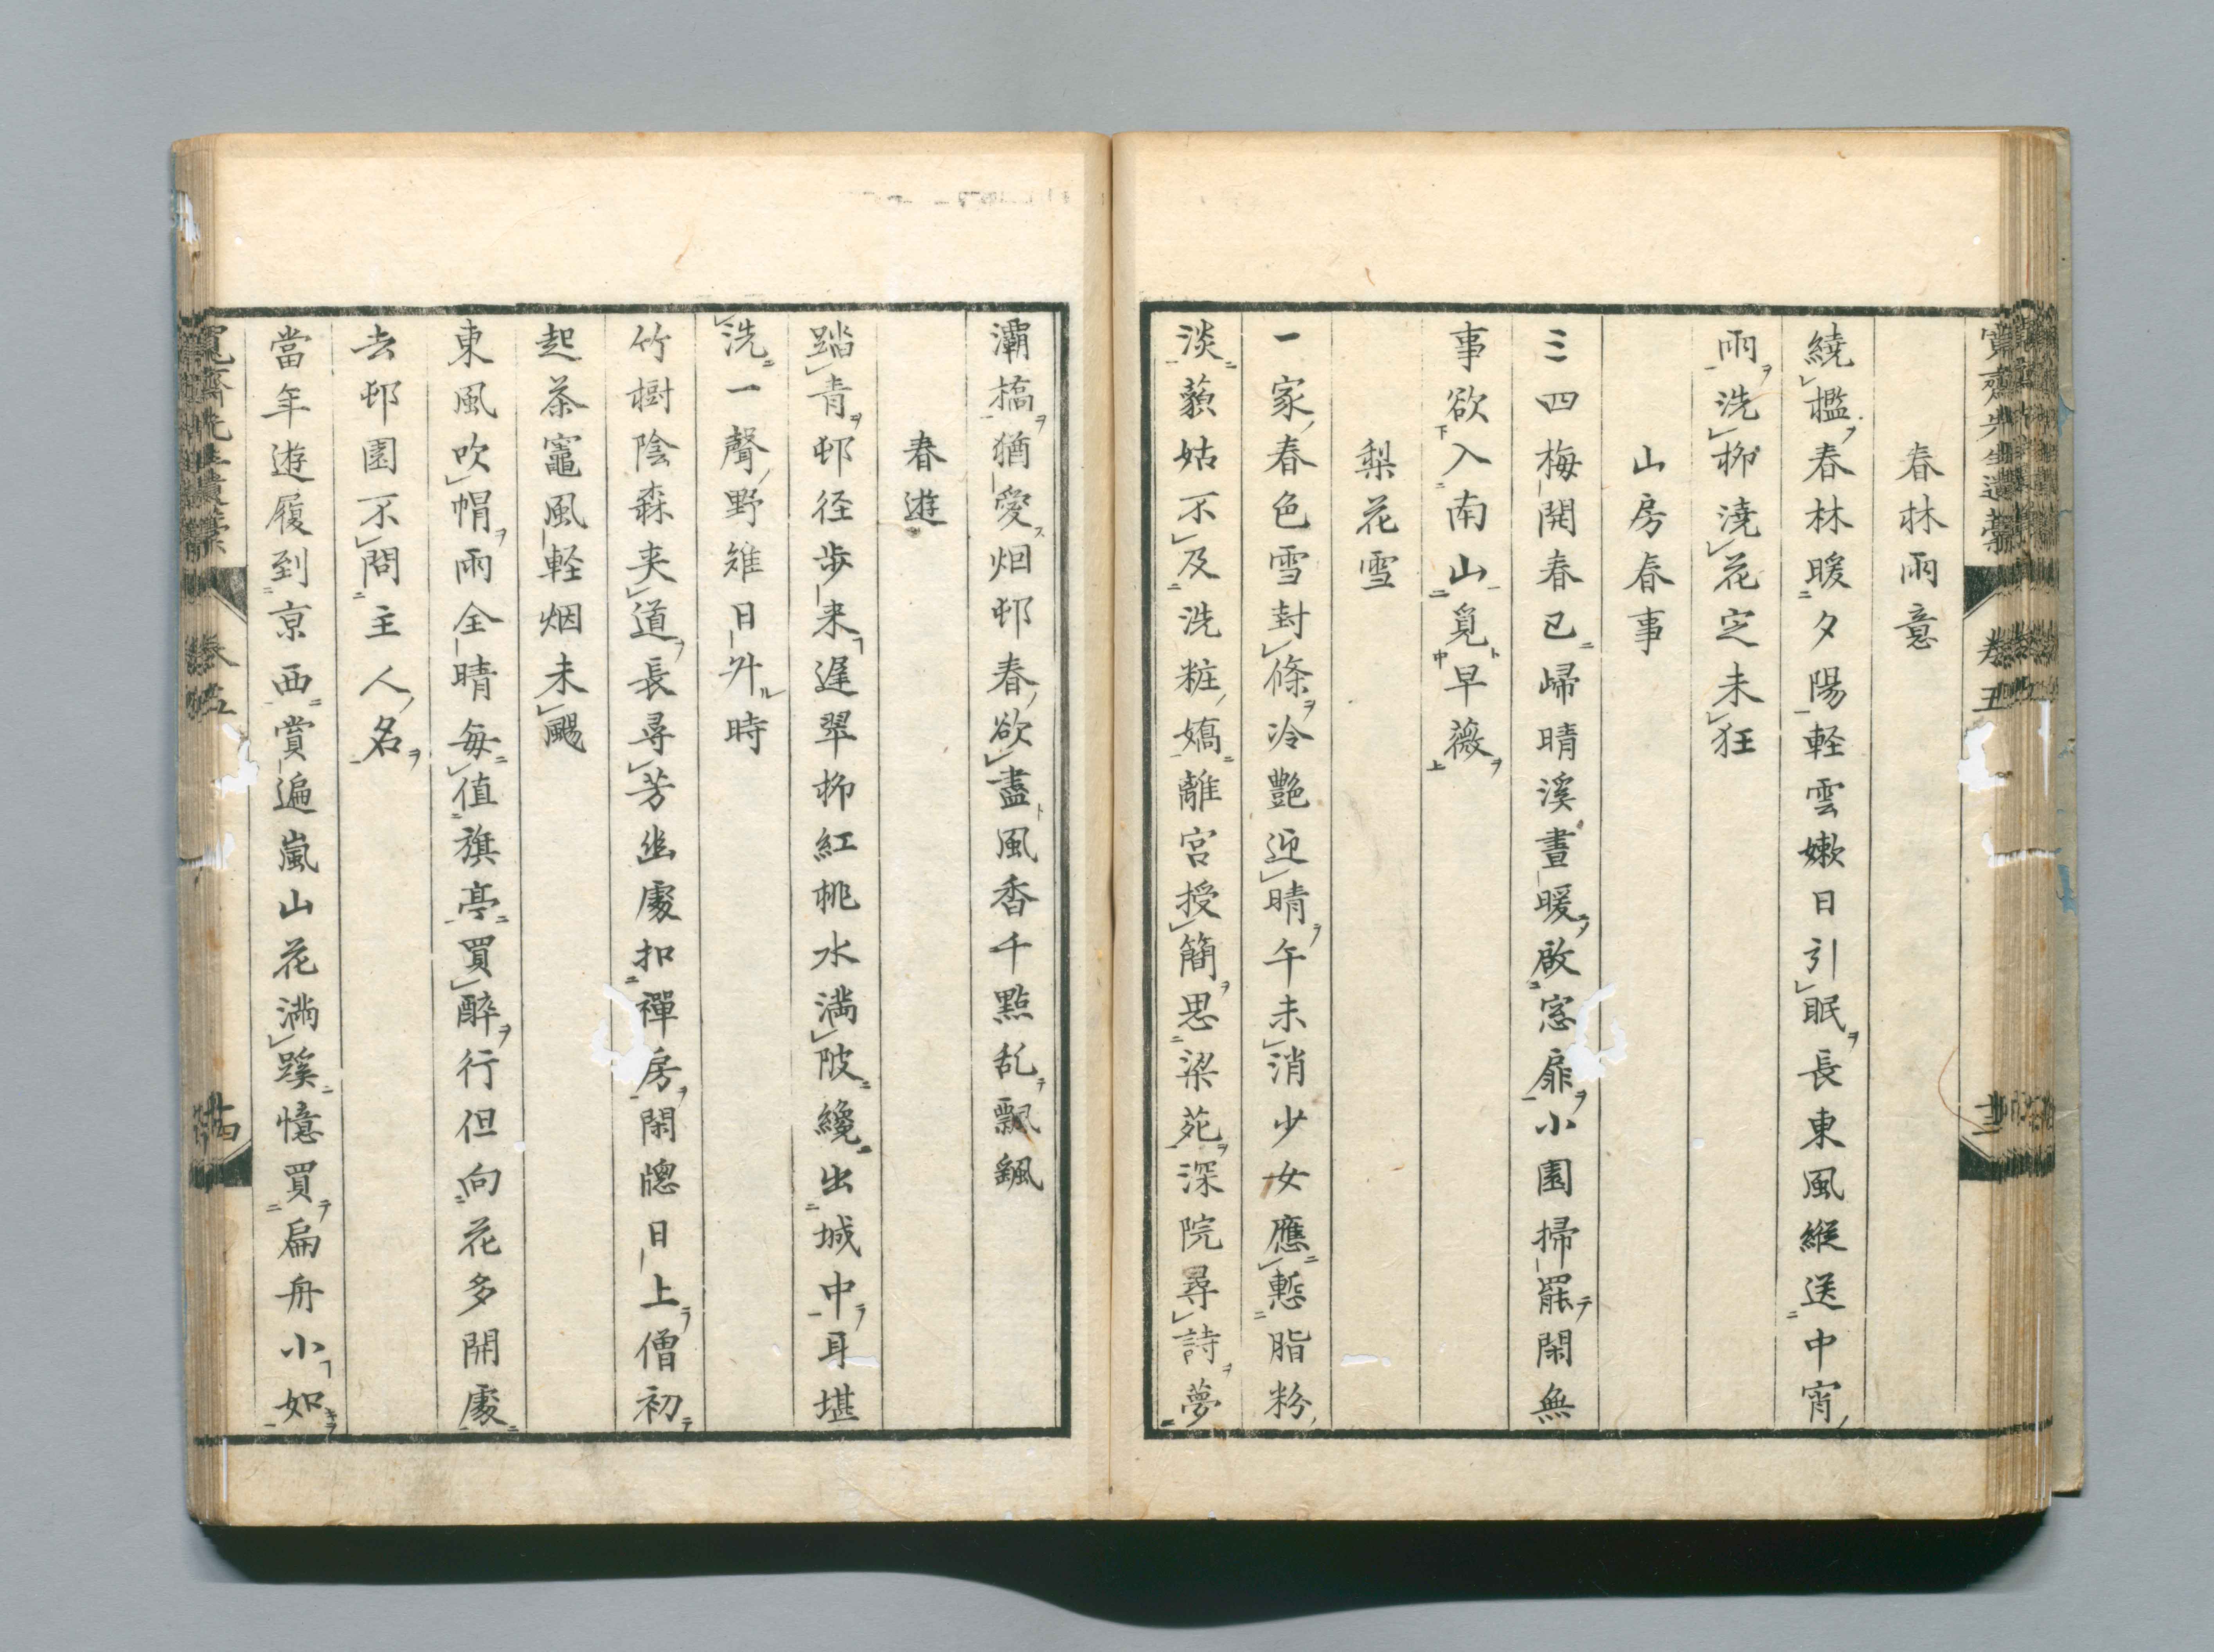 寛齋先生遺藁 卷五 廿三
春林雨意
繞檻春林暖夕陽軽雲嫩日引眠長東風縱送中宵
雨洗柳澆花定未狂
山房春事
三四梅開春已歸晴溪晝暖啟窓扉小園掃罷閑無
事欲入南山覓早薇
梨花雪
一家春色雪封條冷艷迎晴午未消少女應慙脂粉
淡藐姑不及洗粧嬌離宮授簡思梁苑深院尋詩夢
灞橋猶愛烟邨春欲盡風香千點乱飄颻
春遊
踏青邨径歩来遲翠柳紅桃水満陂纔出城中耳堪
洗一聲野雉日升時
竹樹陰森夹道長尋芳幽處扣禪房閑牕日上僧初
起茶竈風軽烟未颺
東風吹帽雨全晴每值旗亭買醉行但向花多開處
去邨園不問主人名
當年遊履到京西賞遍嵐山花満蹊憶買扁舟小如
寛齋先生遺藁 卷五 廿四